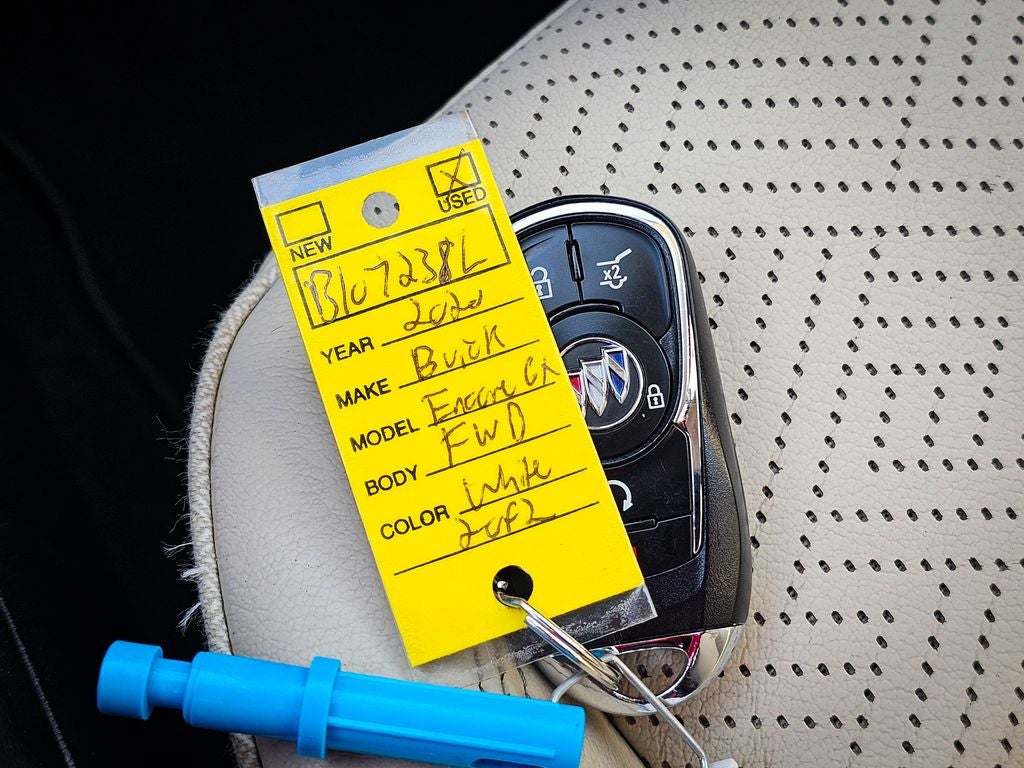 NEW USED
B107238L
YEAR 2020
MAKE Buick
MODEL Encore GX
BODY FWD
COLOR White
2 of 2
x2